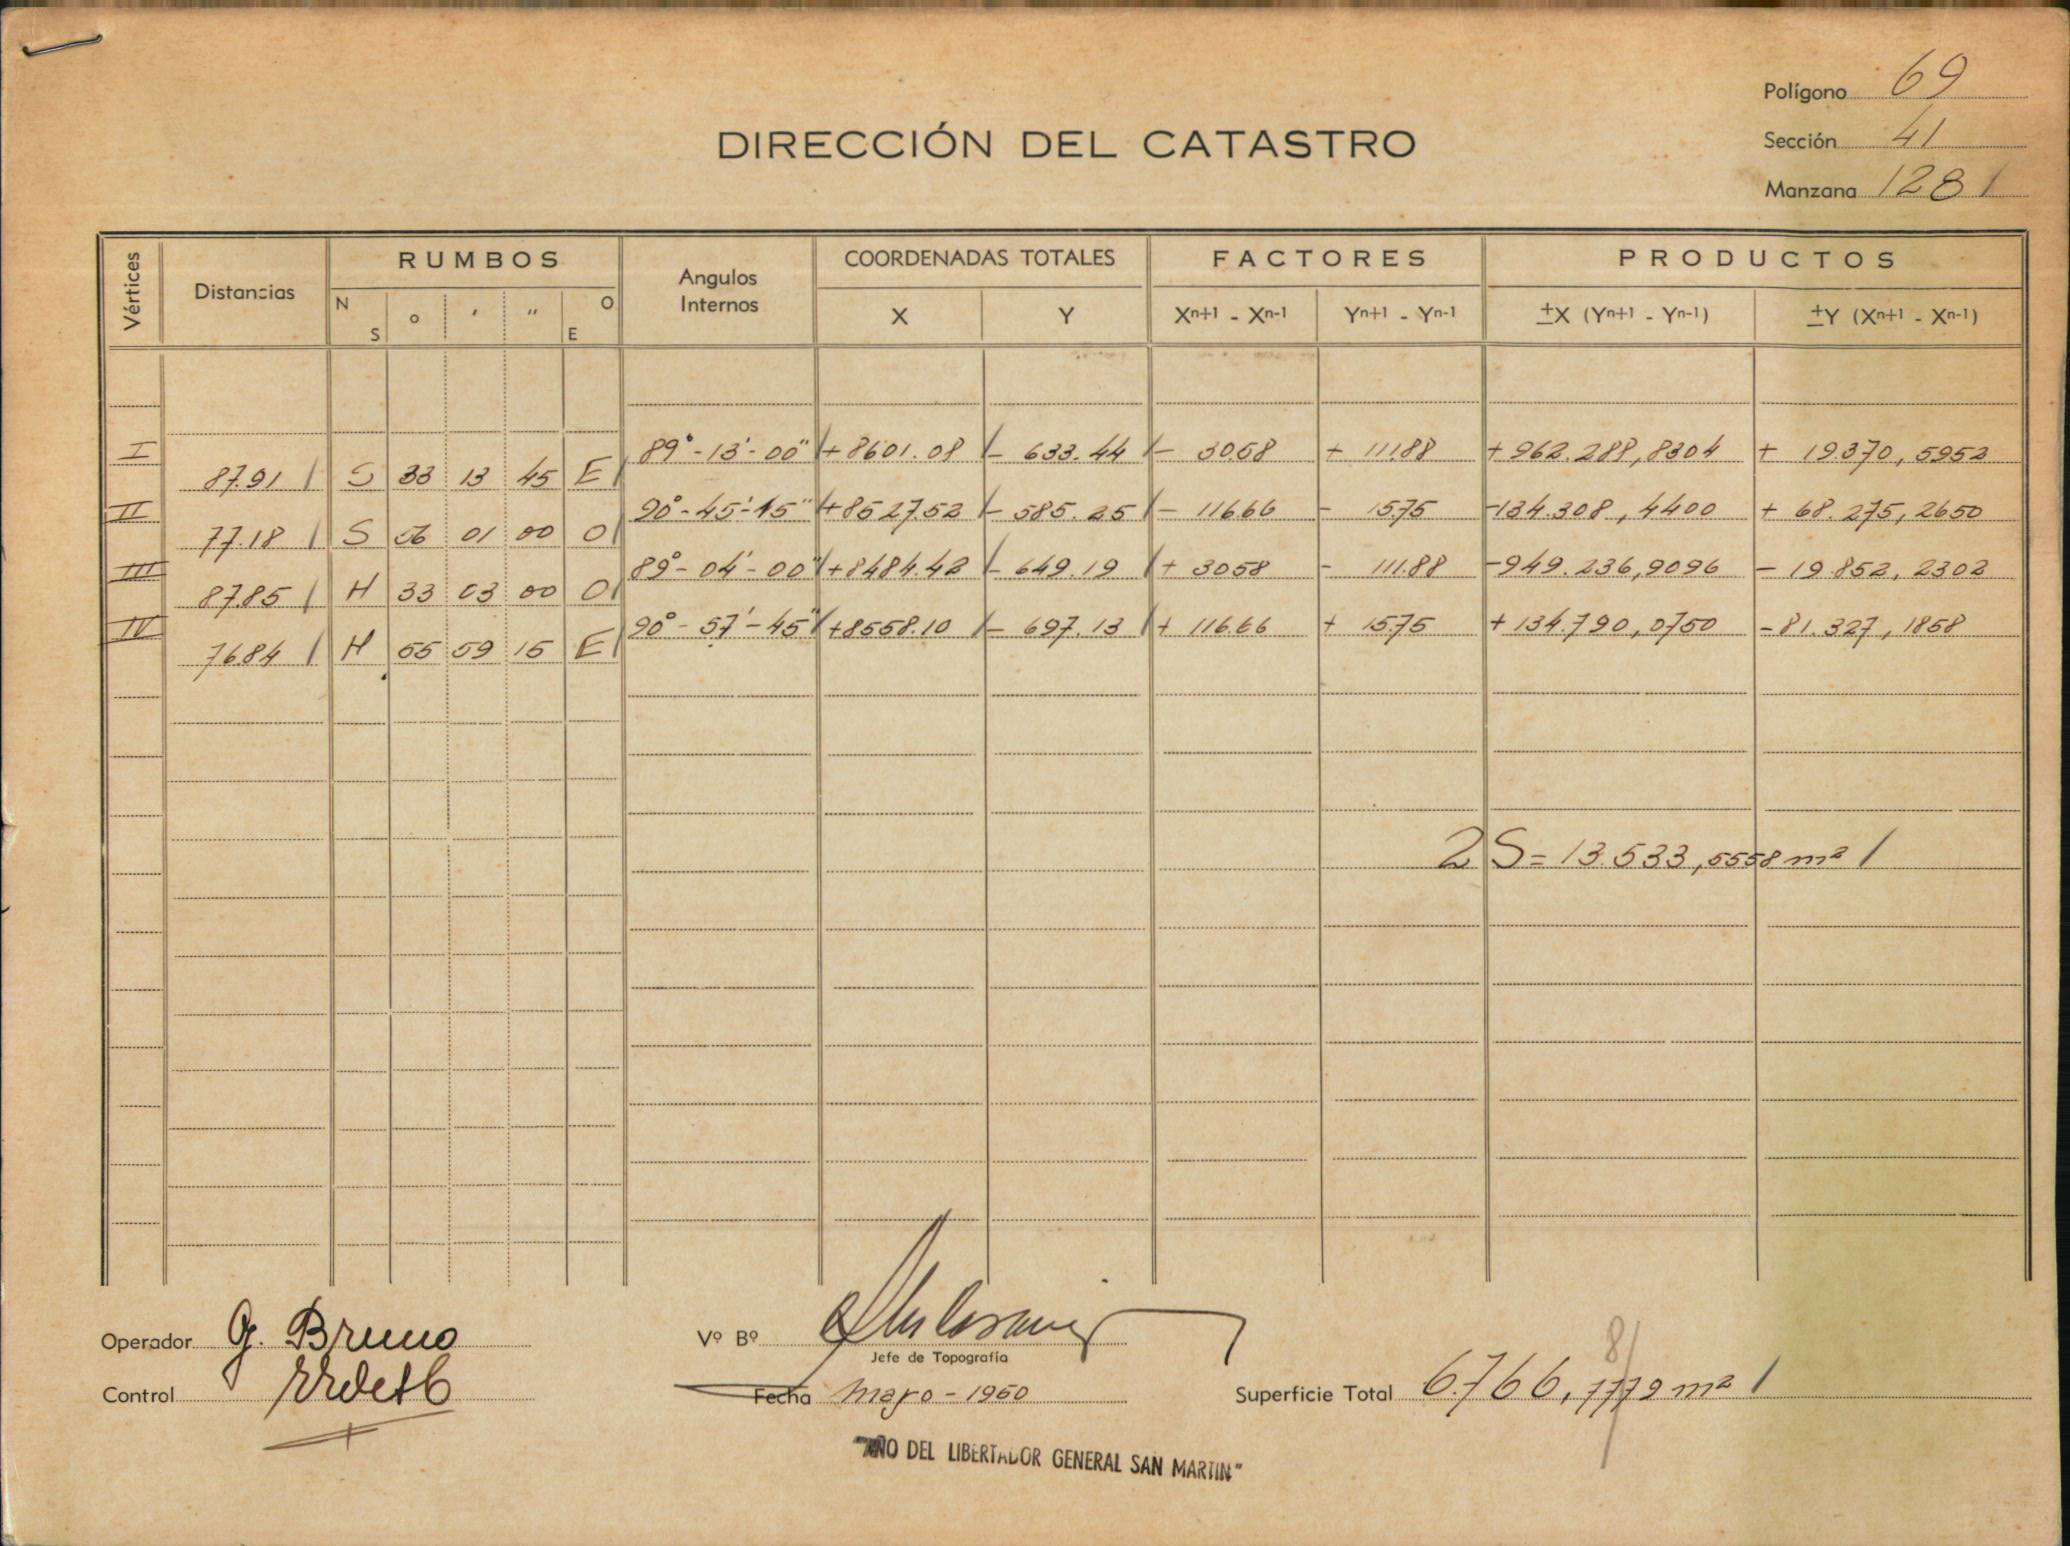 Polígono 69
DIRECCIÓN DEL CATASTRO
Sección 41
Manzana 128 /
Vértices Distancias RUMBOS Angulos Internos COORDENADAS TOTALES FACTORES PRODUCTOS
N S ° ' " O E X Y Xn+1 - Xn-1 Yn+1 - Yn-1 ±X (Yn+1 - Yn-1) ±Y (Xn+1 - Xn-1)
I 89°-13'-00" / +8601.08 / - 633.44 / - 30.58 + 111.88 +962.288,8304 + 19.370,5952
87.91 / S 33 13 45 E /
II 90°-45'-15" / +8527.52 / - 585.25 / - 116.66 - 15.75 -134.308,4400 + 68.275,2650
77.18 / S 56 01 00 O /
III 89°-04'-00" / +8484.42 / - 649.19 / + 30.58 - 111.88 -949.236,9096 - 19.852,2302
87.85 / N 33 03 00 O /
IV 90°-57'-45" / +8558.10 / - 697.13 / + 116.66 + 15.75 +134.790,0750 -81.327,1858
76.84 / N 55 59 15 E /
2S = 13.533,5558 m² /
Operador G. Bruno
Vº Bº
Jefe de Topografía
8/
Control
Fecha mayo - 1950
Superficie Total 6.766,7779 m² /
"AÑO DEL LIBERTADOR GENERAL SAN MARTIN"